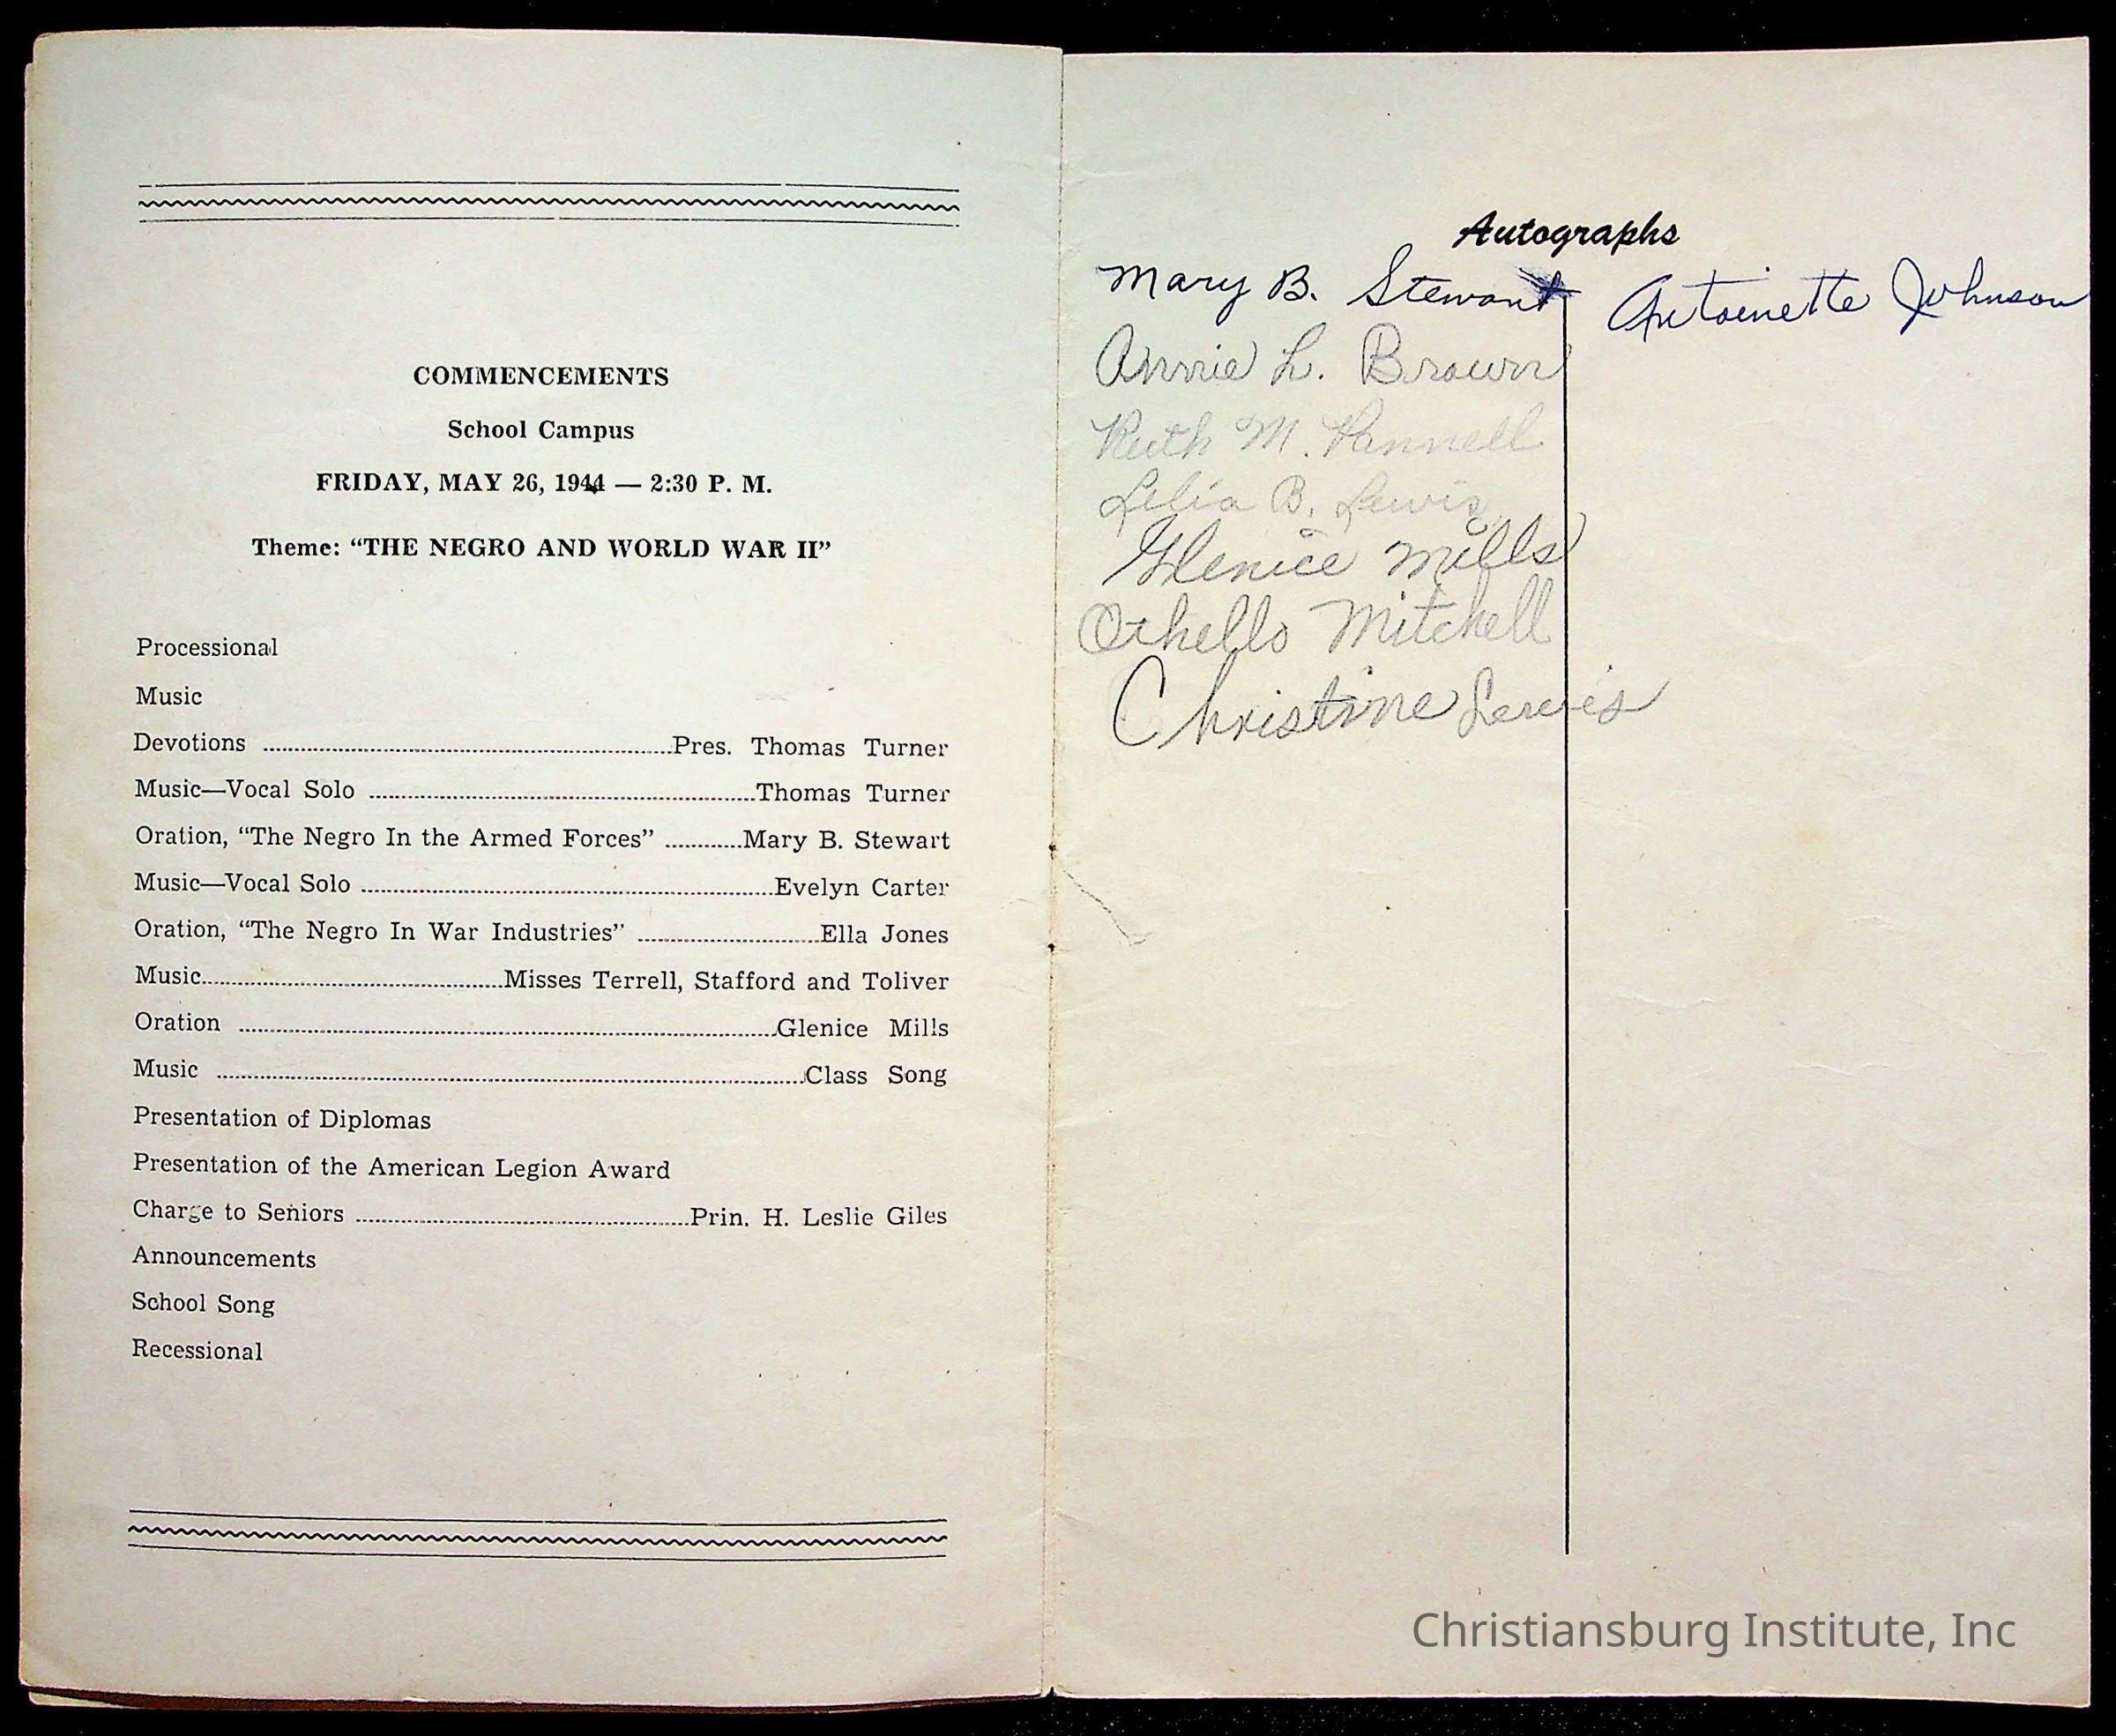 COMMENCEMENTS
School Campus
FRIDAY, MAY 26, 1944 — 2:30 P. M.
Theme: “THE NEGRO AND WORLD WAR II”
Processional
Music
Devotions ........ Pres. Thomas Turner
Music—Vocal Solo ........ Thomas Turner
Oration, “The Negro In the Armed Forces” ........ Mary B. Stewart
Music—Vocal Solo ........ Evelyn Carter
Oration, “The Negro In War Industries” ........ Ella Jones
Music ........ Misses Terrell, Stafford and Toliver
Oration ........ Glenice Mills
Music ........ Class Song
Presentation of Diplomas
Presentation of the American Legion Award
Charge to Seniors ........ Prin. H. Leslie Giles
Announcements
School Song
Recessional
Autographs
Mary B. Stewart
Annie L. Brown
Ruth M. Pannell
Lelia B. Lewis
Glenice Mills
Othello Mitchell
Christine Lewis
Antoinette Johnson
Christiansburg Institute, Inc